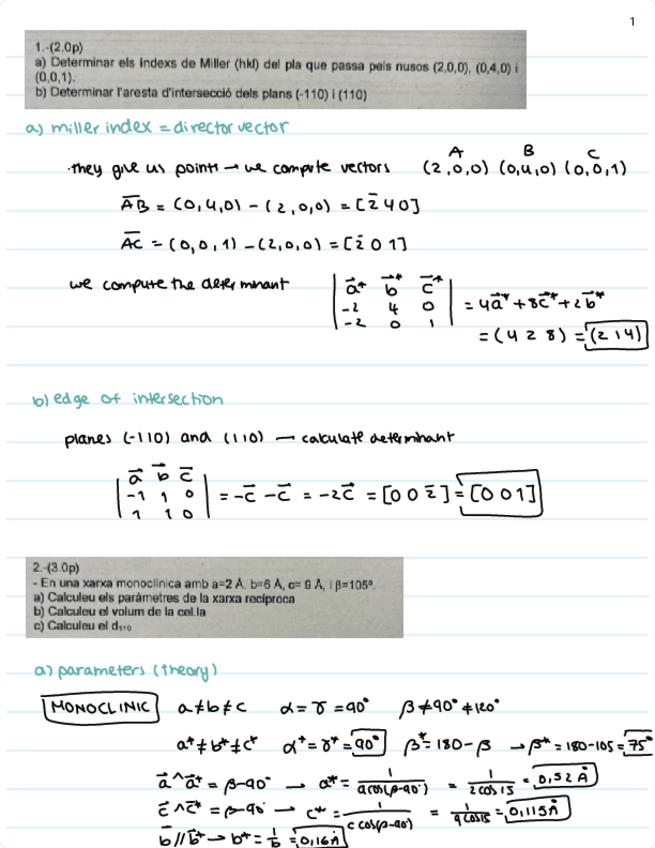 1
1.-(2.0p)
a) Determinar els índexs de Miller (hkl) del pla que passa pels nusos (2,0,0), (0,4,0) i
(0,0,1).
b) Determinar l'aresta d'intersecció dels plans (-110) i (110)
a) miller index = director vector
they give us points → we compute vectors A (2,0,0) B (0,4,0) C (0,0,1)
AB = (0,4,0) - (2,0,0) = [2̄ 4 0]
AC = (0,0,1) - (2,0,0) = [2̄ 0 1]
we compute the determinant
| a⃗* b⃗* c⃗* |
| -2 4 0 | = 4a⃗* + 8c⃗* + 2b⃗*
| -2 0 1 |
= (4 2 8) = (2 1 4)
b) edge of intersection
planes (-110) and (110) — calculate determinant
| a⃗ b⃗ c⃗ |
| -1 1 0 | = -c⃗ - c⃗ = -2c⃗ = [0 0 2̄] = [0 0 1]
| 1 1 0 |
2.-(3.0p)
- En una xarxa monoclínica amb a=2 Å, b=6 Å, c= 9 Å, i β=105º.
a) Calculeu els paràmetres de la xarxa recíproca
b) Calculeu el volum de la cel.la
c) Calculeu el d₁₁₀
a) parameters (theory)
MONOCLINIC a≠b≠c α=γ=90° β≠90°≠120°
a*≠b*≠c* α*=γ*=90° β*=180-β → β*=180-105=75°
a⃗^a⃗* = β-90° → a* = 1/(a cos(β-90°)) = 1/(2 cos 15) = 0,52 Å
c⃗^c⃗* = β-90° → c* = 1/(c cos(β-90)) = 1/(9 cos 15) = 0,115 Å
b⃗//b⃗* → b* = 1/b = 0,16 Å